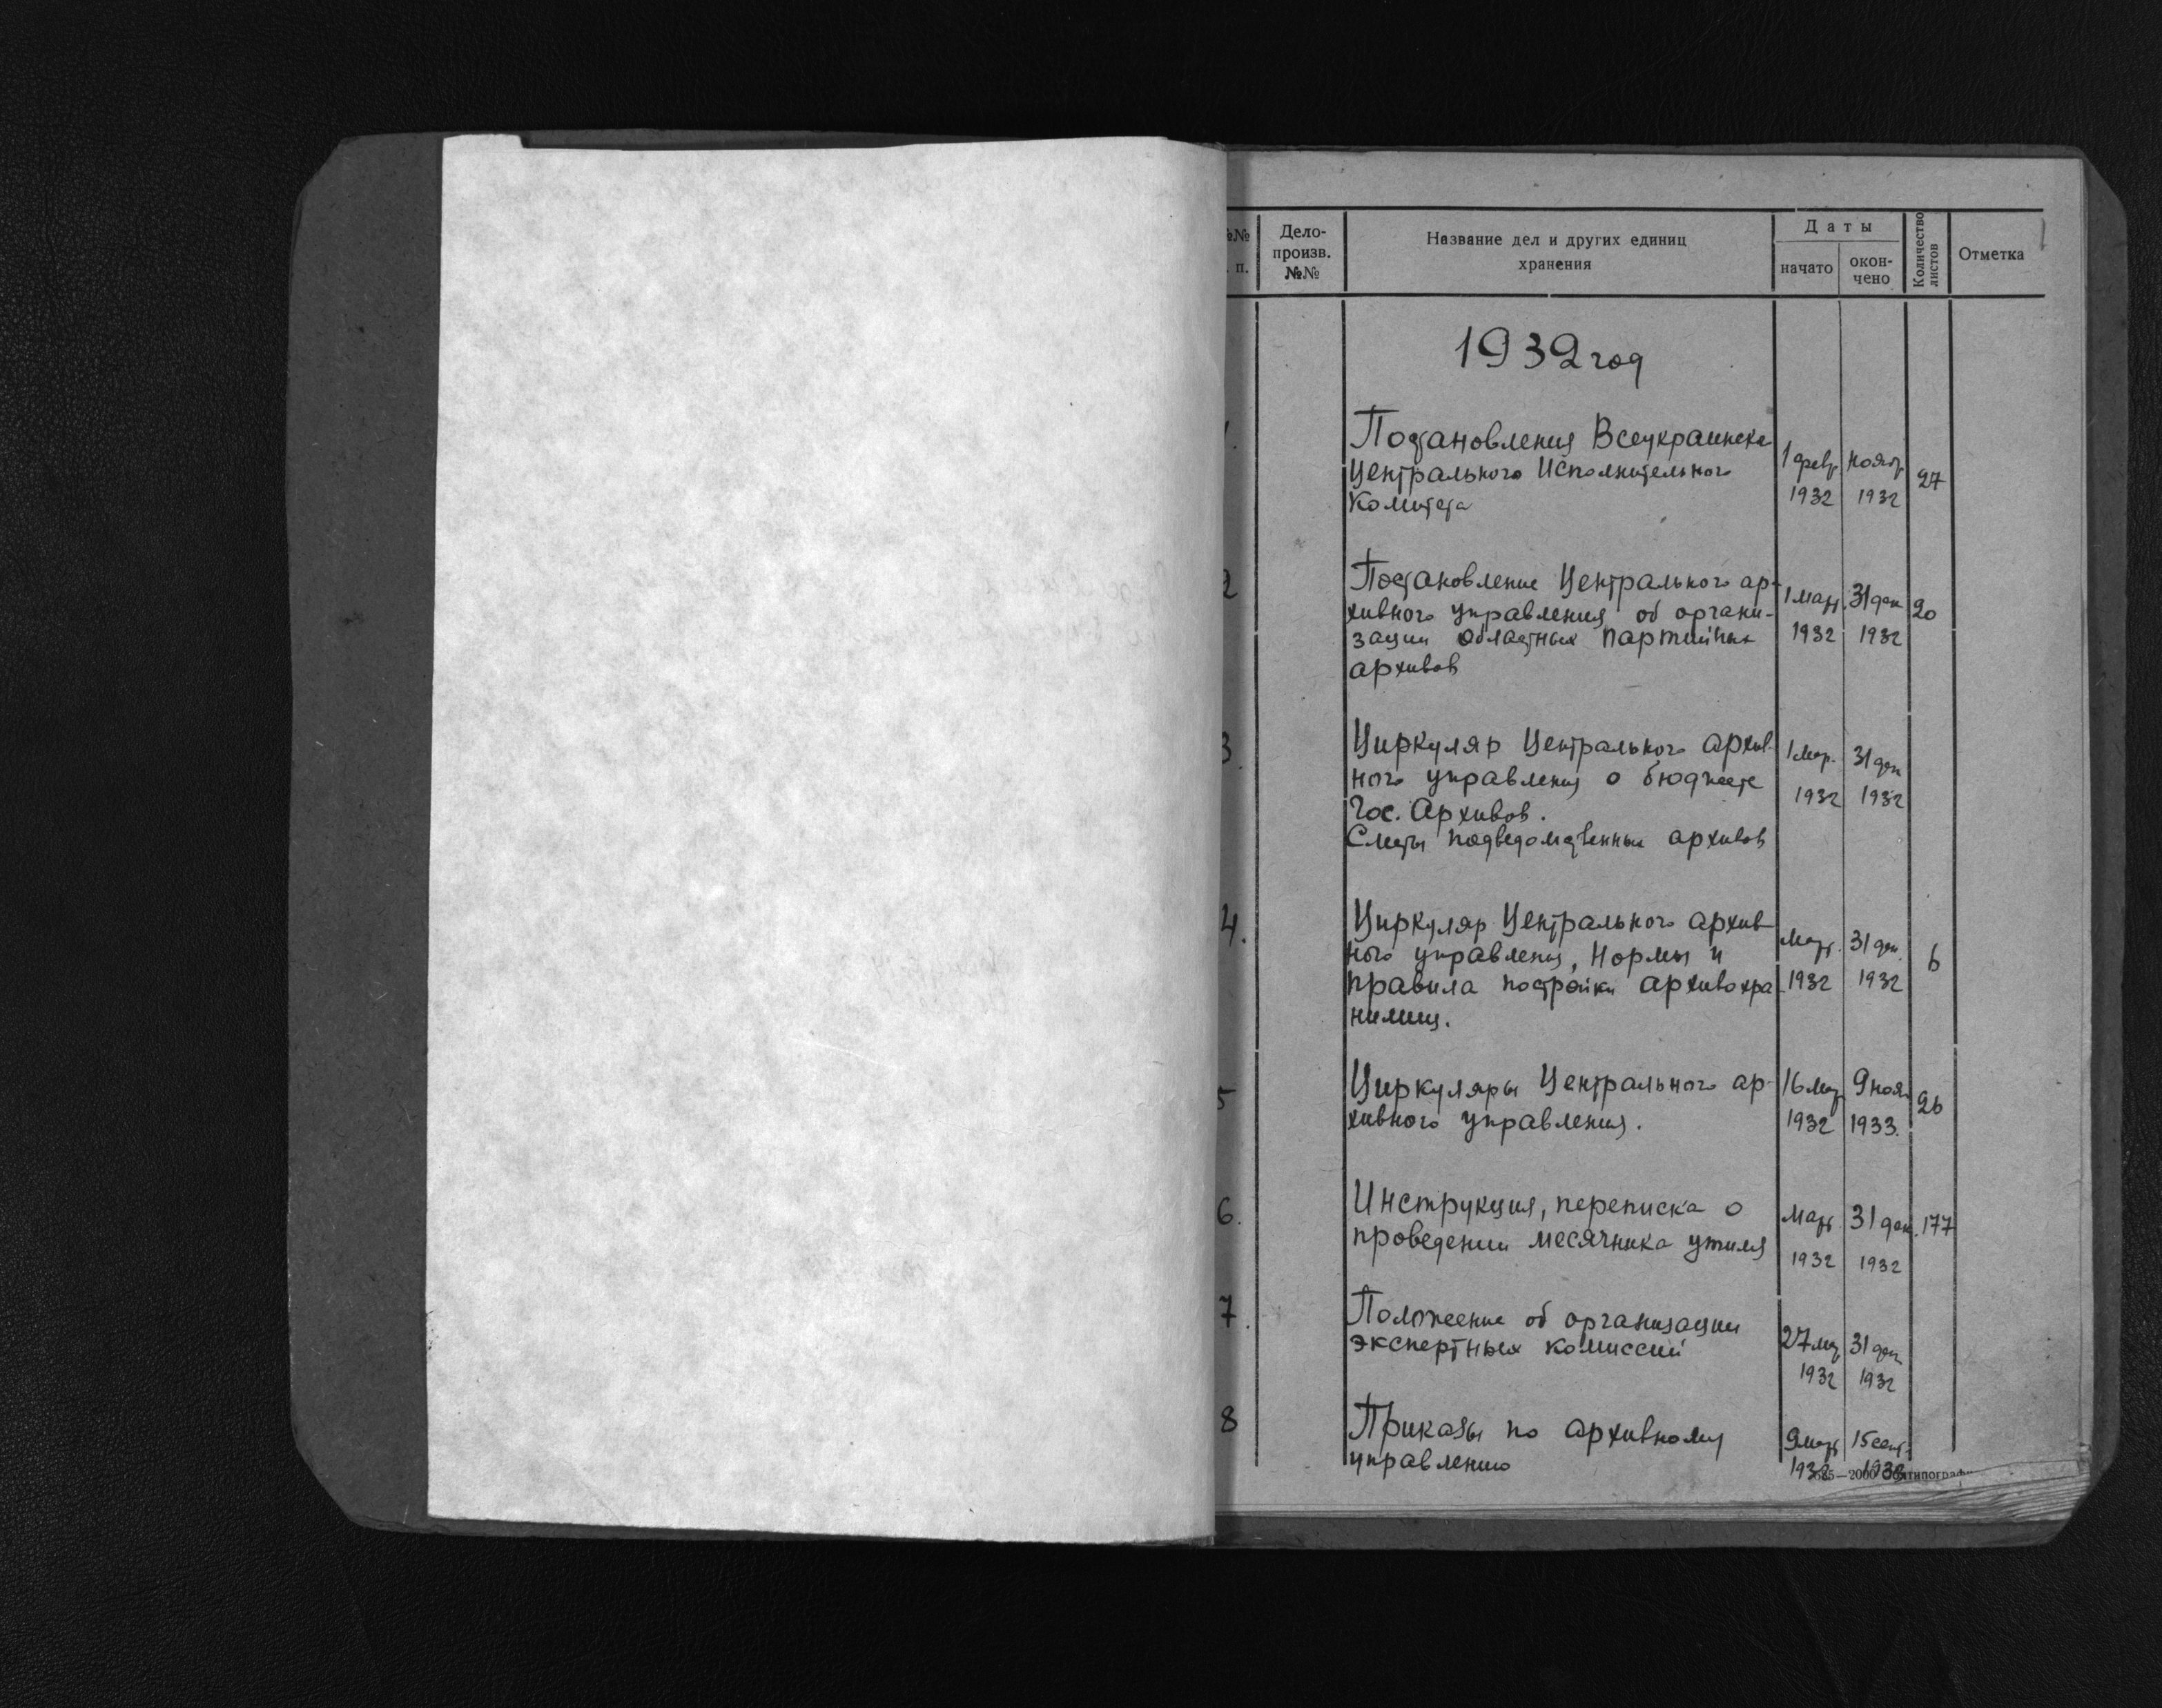 №№ п.
Дело-
произв.
№№
Название дел и других единиц
хранения
Даты
начато
окон-
чено
Количество
листов
Отметка
1
1932 год
1.
Постановления Всеукраинска
Центрального Исполнительного
Комитета
1 февр. 1932
нояб. 1932
27
2
Постановление Центрального ар-
хивного управления об органи-
зации областных партийных
архивов
1 март. 1932
31 дек 1932
20
3.
Циркуляр Центрального архив-
ного управления о бюджете
Гос. Архивов.
Сметы подведомственных архивов
1 мар. 1932
31 дек 1932
4.
Циркуляр Центрального архив-
ного управления, Нормы и
правила постройки архивохра-
нилищ.
март. 1932
31 дек. 1932
6
5
Циркуляры Центрального ар-
хивного управления.
16 мар 1932
9 нояб 1933.
26
6.
Инструкция, переписка о
проведении месячника утиля
март. 1932
31 дек. 1932
177
7.
Положение об организации
экспертных комиссий
27 1932
31 дек 1932
8
Приказы по архивному
управлению
9 март 1932
15 сент. 1932